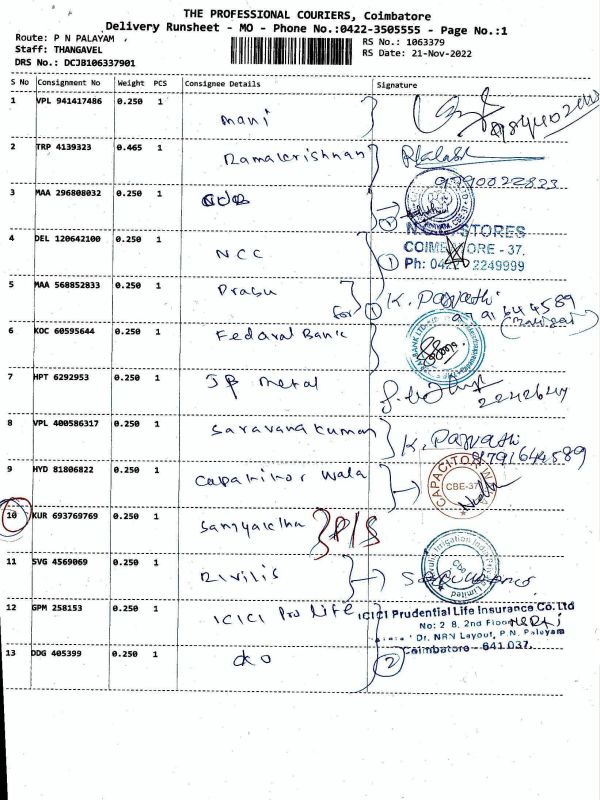 THE PROFESSIONAL COURIERS, Coimbatore
Delivery Runsheet - MO - Phone No.:0422-3505555 - Page No.:1
Route: P N PALAYAM
RS No.: 1063379
Staff: THANGAVEL
RS Date: 21-Nov-2022
DRS No.: DCJB106337901
S No Consignment No Weight PCS Consignee Details Signature
1 VPL 941417486 0.250 1 Mani
2 TRP 4139323 0.465 1 Ramakrishnan
9790022823
3 MAA 296808032 0.250 1
STORES
4 DEL 120642100 0.250 1 NCC 1 COIMBATORE - 37.
Ph: 0422 2249999
5 MAA 568852833 0.250 1 Prabu for 1 K. Parvathi
8791644589
6 KOC 60595644 0.250 1 Federal Bank
7 HPT 6292953 0.250 1 JB metal
2242647
8 VPL 400586317 0.250 1 Saravana kumar K. Parvathi
8791644589
9 HYD 81806822 0.250 1 Capacitor wala CAPACITOR WALA
CBE-37
10 KUR 693769769 0.250 1
11 SVG 4569069 0.250 1 Rivilis
12 GPM 258153 0.250 1 ICICI Pro Life ICICI Prudential Life Insurance Co. Ltd
No: 2 8, 2nd Floor
Dr. NRN Layout, P.N. Palayam
13 DDG 405399 0.250 1 do 2 Coimbatore - 641 037.